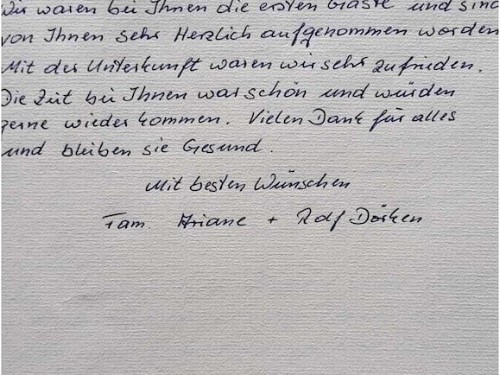 Wir waren bei Ihnen die ersten Gäste und sind
von Ihnen sehr Herzlich aufgenommen worden
Mit der Unterkunft waren wir sehr zufrieden.
Die Zeit bei Ihnen war schön und würden
gerne wieder kommen. Vielen Dank für alles
und bleiben sie Gesund.
Mit besten Wünschen
Fam. Ariane + Rolf Dörken